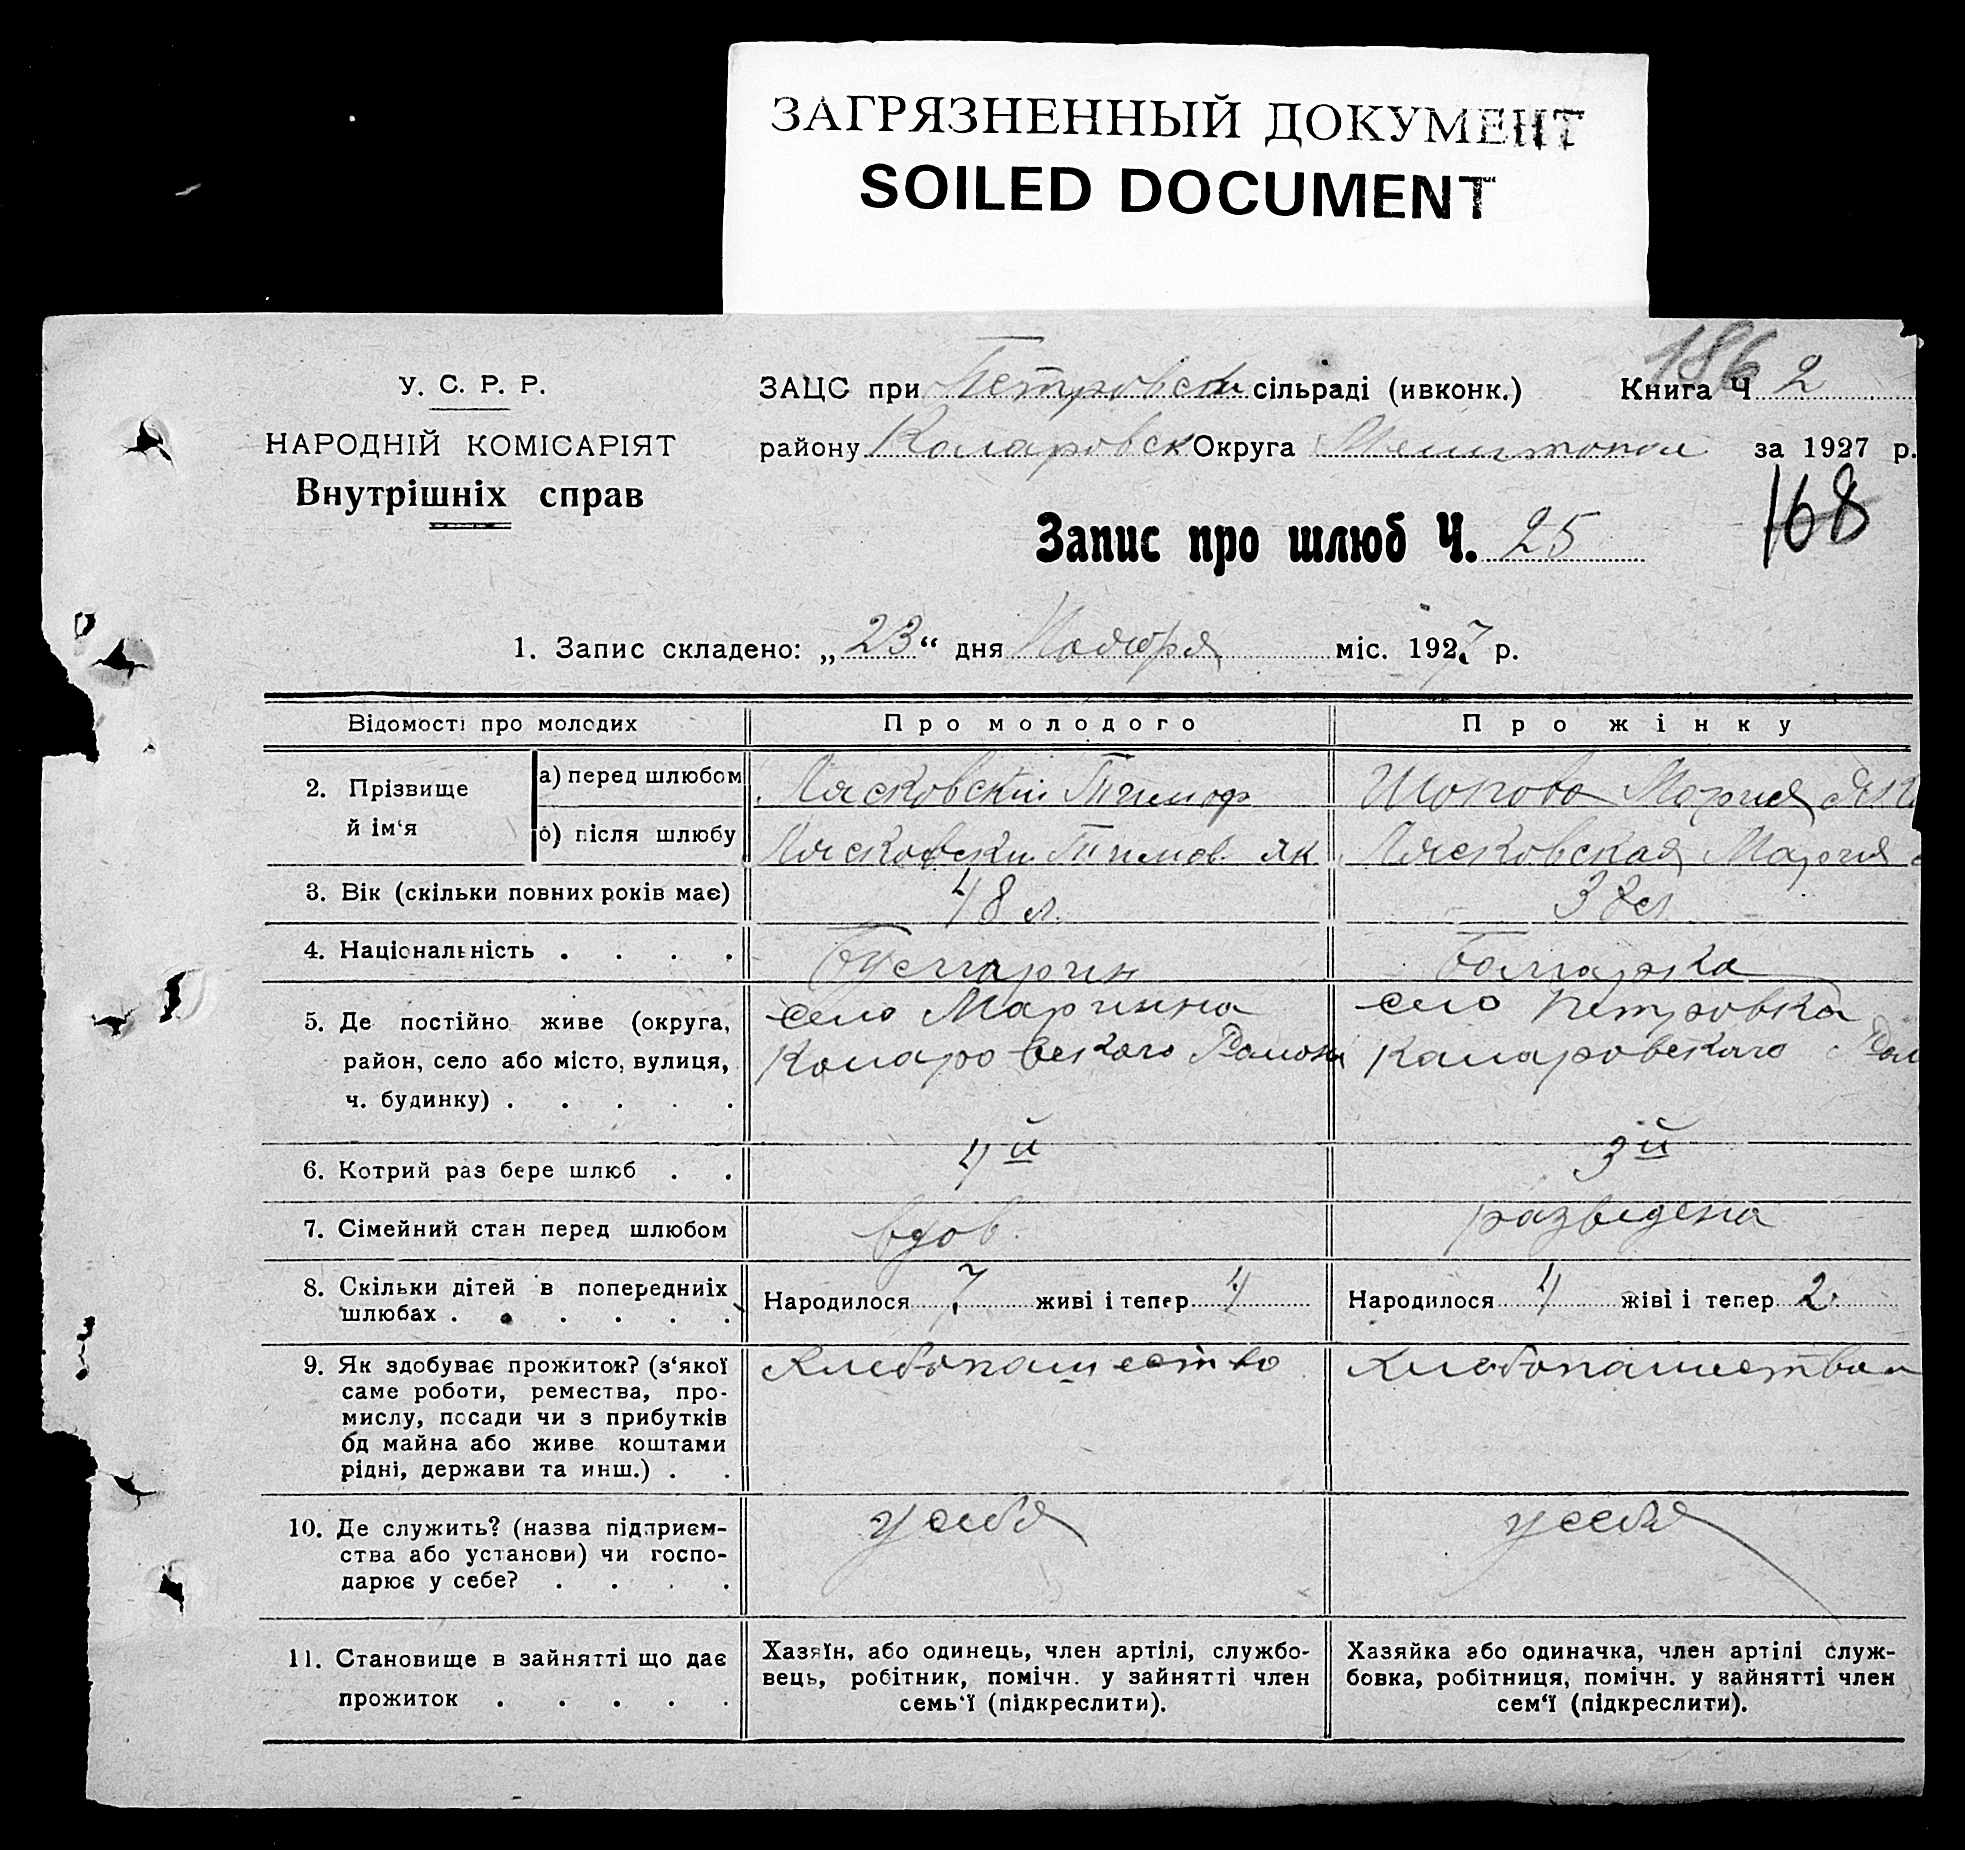 ЗАГРЯЗНЕННЫЙ ДОКУМЕНТ
SOILED DOCUMENT
186
У. С. Р. Р.
НАРОДНІЙ КОМІСАРІЯТ
Внутрішніх справ
ЗАЦС при Петровск сільраді (ивконк.) Книга Ч 2
району Коларовск Округа Мелитопол за 1927 р.
168
Запис про шлюб Ч. 25
1. Запис складено: „23“ дня Ноября міс. 1927 р.
Відомості про молодих Про молодого Про жінку
2. Прізвище й ім‘я
а) перед шлюбом Лясковскій Тимоф Шопова Мария
б) після шлюбу Лясковски Тимоф. Як Лясковская Мария
3. Вік (скільки повних років має) 48 л. 38 л
4. Національність . . . . Булгарин Болгарка
5. Де постійно живе (округа, село Маринна село Петровка
район, село або місто, вулиця, Коларовского Района Каларовского Рай
ч. будинку) . . . . .
6. Котрий раз бере шлюб . . 4й 3й
7. Сімейний стан перед шлюбом вдов. разведена
8. Скільки дітей в попередниіх Народилося 7 живі і тепер 4 Народилося 4 жіві і тепер 2
шлюбах . . . . . .
9. Як здобуває прожиток? (з‘якої Хлебопашество Хлебопашество
саме роботи, ремества, про-
мислу, посади чи з прибутків
бд майна або живе коштами
рідні, держави та инш.) . .
10. Де служить? (назва підприєм- у себя у себя
ства або установи) чи госпо-
дарює у себе? . . . .
11. Становище в зайнятті що дає
прожиток . . . . .
Хазяїн, або одинець, член артілі, службо-
вець, робітник, помічн. у зайнятті член
семь‘ї (підкреслити).
Хазяйка або одиначка, член артілі служ-
бовка, робітниця, помічн. у зайнятті член
сем‘ї (підкреслити).